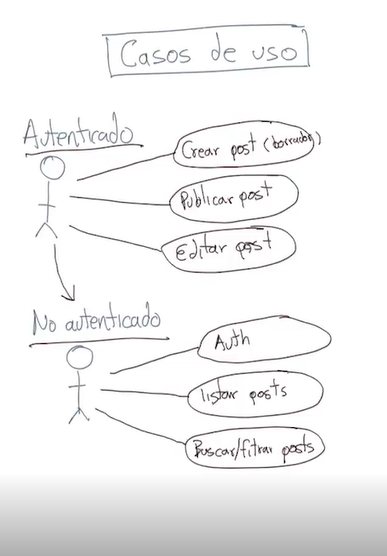 Casos de uso
Autenticado
Crear post (borrador)
Publicar post
Editar post
No autenticado
Auth
listar posts
Buscar/fitrar posts